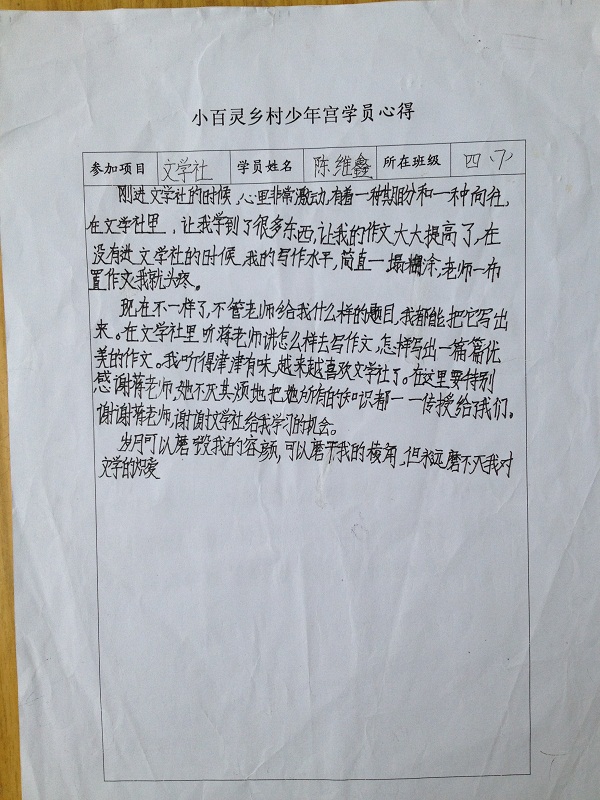 小百灵乡村少年宫学员心得
参加项目 文学社 学员姓名 陈维鑫 所在班级 四、7
刚进文学社的时候,心里非常激动,有着一种期盼和一种向往,
在文学社里,让我学到了很多东西,让我的作文大大提高了,在
没有进文学社的时候,我的写作水平,简直一塌糊涂,老师一布
置作文我就头疼。
现在不一样了,不管老师给我什么样的题目,我都能把它写出
来。在文学社里听蒋老师讲怎么样去写作文,怎样写出一篇篇优
美的作文。我听得津津有味,越来越喜欢文学社了。在这里要特别
感谢蒋老师,她不厌其烦地把她所有的知识都一一传授给我们。
谢谢蒋老师,谢谢文学社给我学习的机会。
岁月可以磨毁我的容颜,可以磨平我的棱角,但永远磨不灭我对
文学的炽爱